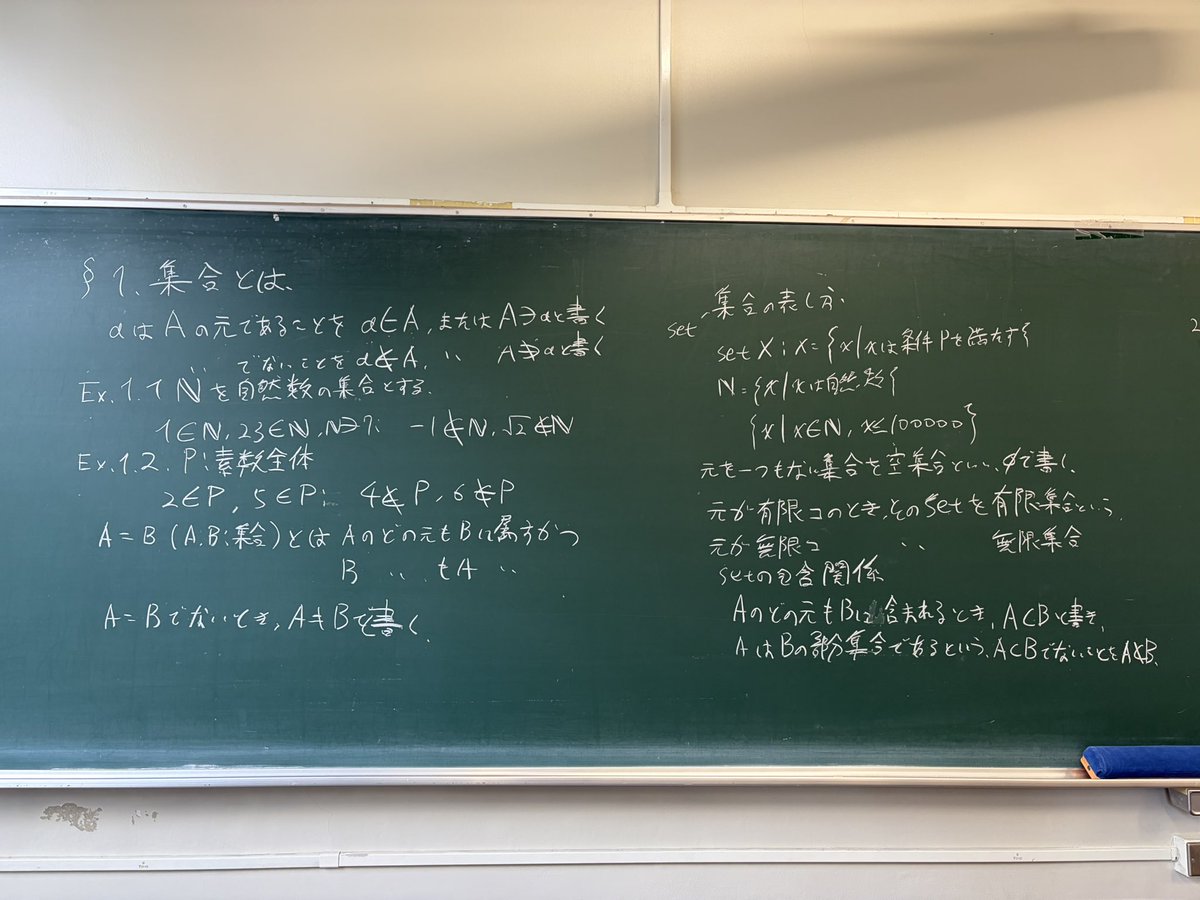 §1. 集合とは、
aはAの元であることを a∈A, またはA∋aと書く
〃 でないことを a∉A, 〃 A∌aと書く
Ex.1.1 ℕを自然数の集合とする.
1∈ℕ, 23∈ℕ, ℕ∋7; -1∉ℕ, √2∉ℕ
Ex.1.2. P:素数全体
2∈P, 5∈P; 4∉P, 6∉P
A=B (A,B:集合)とは Aのどの元もBに属すかつ
B 〃 もA 〃
A=Bでないとき, A≠Bと書く.
set 集合の表し方.
set X; X={x|xは条件Pを満たす}
ℕ={x|xは自然数}
{x|x∈ℕ, x≤100000}
元を一つもない集合を空集合といい、φで書く.
元が有限コのとき, そのsetを有限集合という.
元が無限コ 〃 無限集合
setの包含関係
Aのどの元もBに含まれるとき, A⊂Bと書き,
AはBの部分集合であるという. A⊂BでないことをA⊄B.